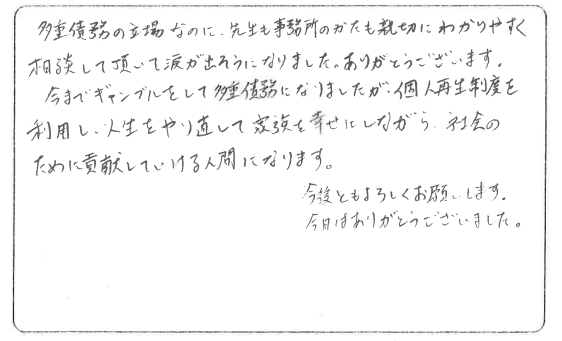 多重債務の立場なのに、先生も事務所のかたも親切にわかりやすく
相談して頂いて涙が出そうになりました。ありがとうございます。
今までギャンブルをして多重債務になりましたが、個人再生制度を
利用し、人生をやり直して家族を幸せにしながら、社会の
ために貢献していける人間になります。
今後ともよろしくお願いします。
今日はありがとうございました。